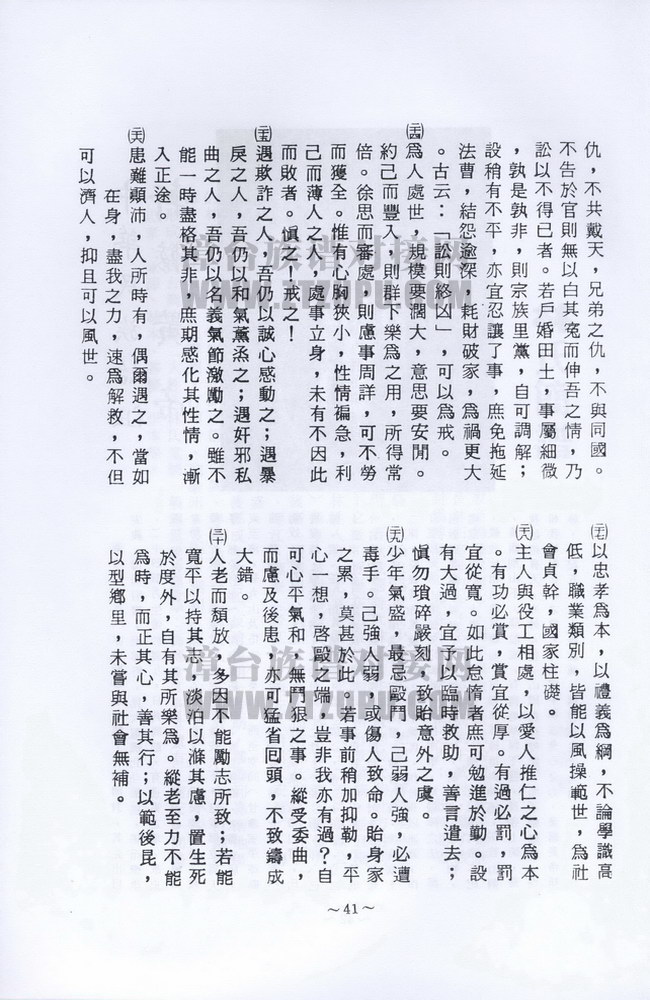 仇，不共戴天，兄弟之仇，不與同國。
不告於官則無以白其冤而伸吾之情，乃
訟以不得已者。若戶婚田土，事屬細微
，孰是孰非，則宗族里黨，自可調解；
設稍有不平，亦宜忍讓了事，庶免拖延
法曹，結怨逾深，耗財破家，為禍更大
。古云：「訟則終凶」，可以為戒。
㈣為人處世，規模要濶大，意思要安閒。
約己而豐入，則群下樂為之用，所得常
倍。徐思而審處，則慮事周詳，可不勞
而獲全。惟有心胸狹小，性情褊急，利
己而薄人之人，處事立身，未有不因此
而敗者。慎之！戒之！
遇欺詐之人，吾仍以誠心感動之；遇暴
戾之人，吾仍以和氣薰烝之；遇奸邪私
曲之人，吾仍以名義氣節激勵之。雖不
能一時盡格其非，庶期感化其性情，漸
入正途。
患難顛沛，人所時有，偶爾遇之，當如
在身，盡我之力，速為解救，不但
可以濟人，抑且可以風世。
以忠孝為本，以禮義為綱，不論學識高
低，職業類別，皆能以風操範世，為社
會貞幹，國家柱礎。
主人與役工相處，以愛人推仁之心為本
。有功必賞，賞宜從厚。有過必罰，罰
宜從寬。如此怠惰者庶可勉進於勤。設
有大過，宜予以臨時救助，善言遣去；
慎勿瑣碎嚴刻，致貽意外之虞。
少年氣盛，最忌毆鬥，己弱人強，必遭
毒手。己強人弱，或傷人致命。貽身家
之累，莫甚於此。若事前稍加抑勒，平
心一想，啓毆之端，豈非我亦有過？自
可心平氣和，無鬥狠之事。縱受委曲，
而慮及後患，亦可猛省囘頭，不致鑄成
大錯。
人老而頹放，多因不能勵志所致；若能
寬平以持其志，淡泊以滌其慮，置生死
於度外，自有其所樂為。縱老至力不能
為時，而正其心，善其行；以範後昆，
以型鄉里，未嘗與社會無補。
～41～
漳台族谱对接网
WWW.ZTZUPU.COM
漳台族谱对接网
WWW.ZTZUPU.COM